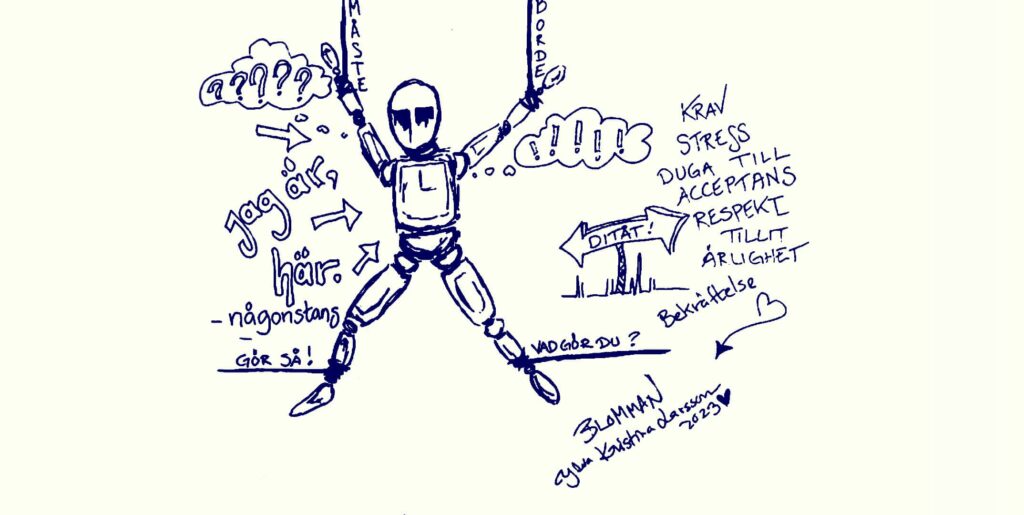 MÅSTE
BORDE
? ? ? ? ?
! ! ! ! !
jag är,
här.
- någonstans
-
GÖR SÅ!
L
KRAV
STRESS
DUGA TILL
ACCEPTANS
RESPEKT
TILLIT
ÄRLIGHET
Bekräftelse
DITÅT!
VAD GÖR DU?
BLOMMAN
Kristina Larsson
2023